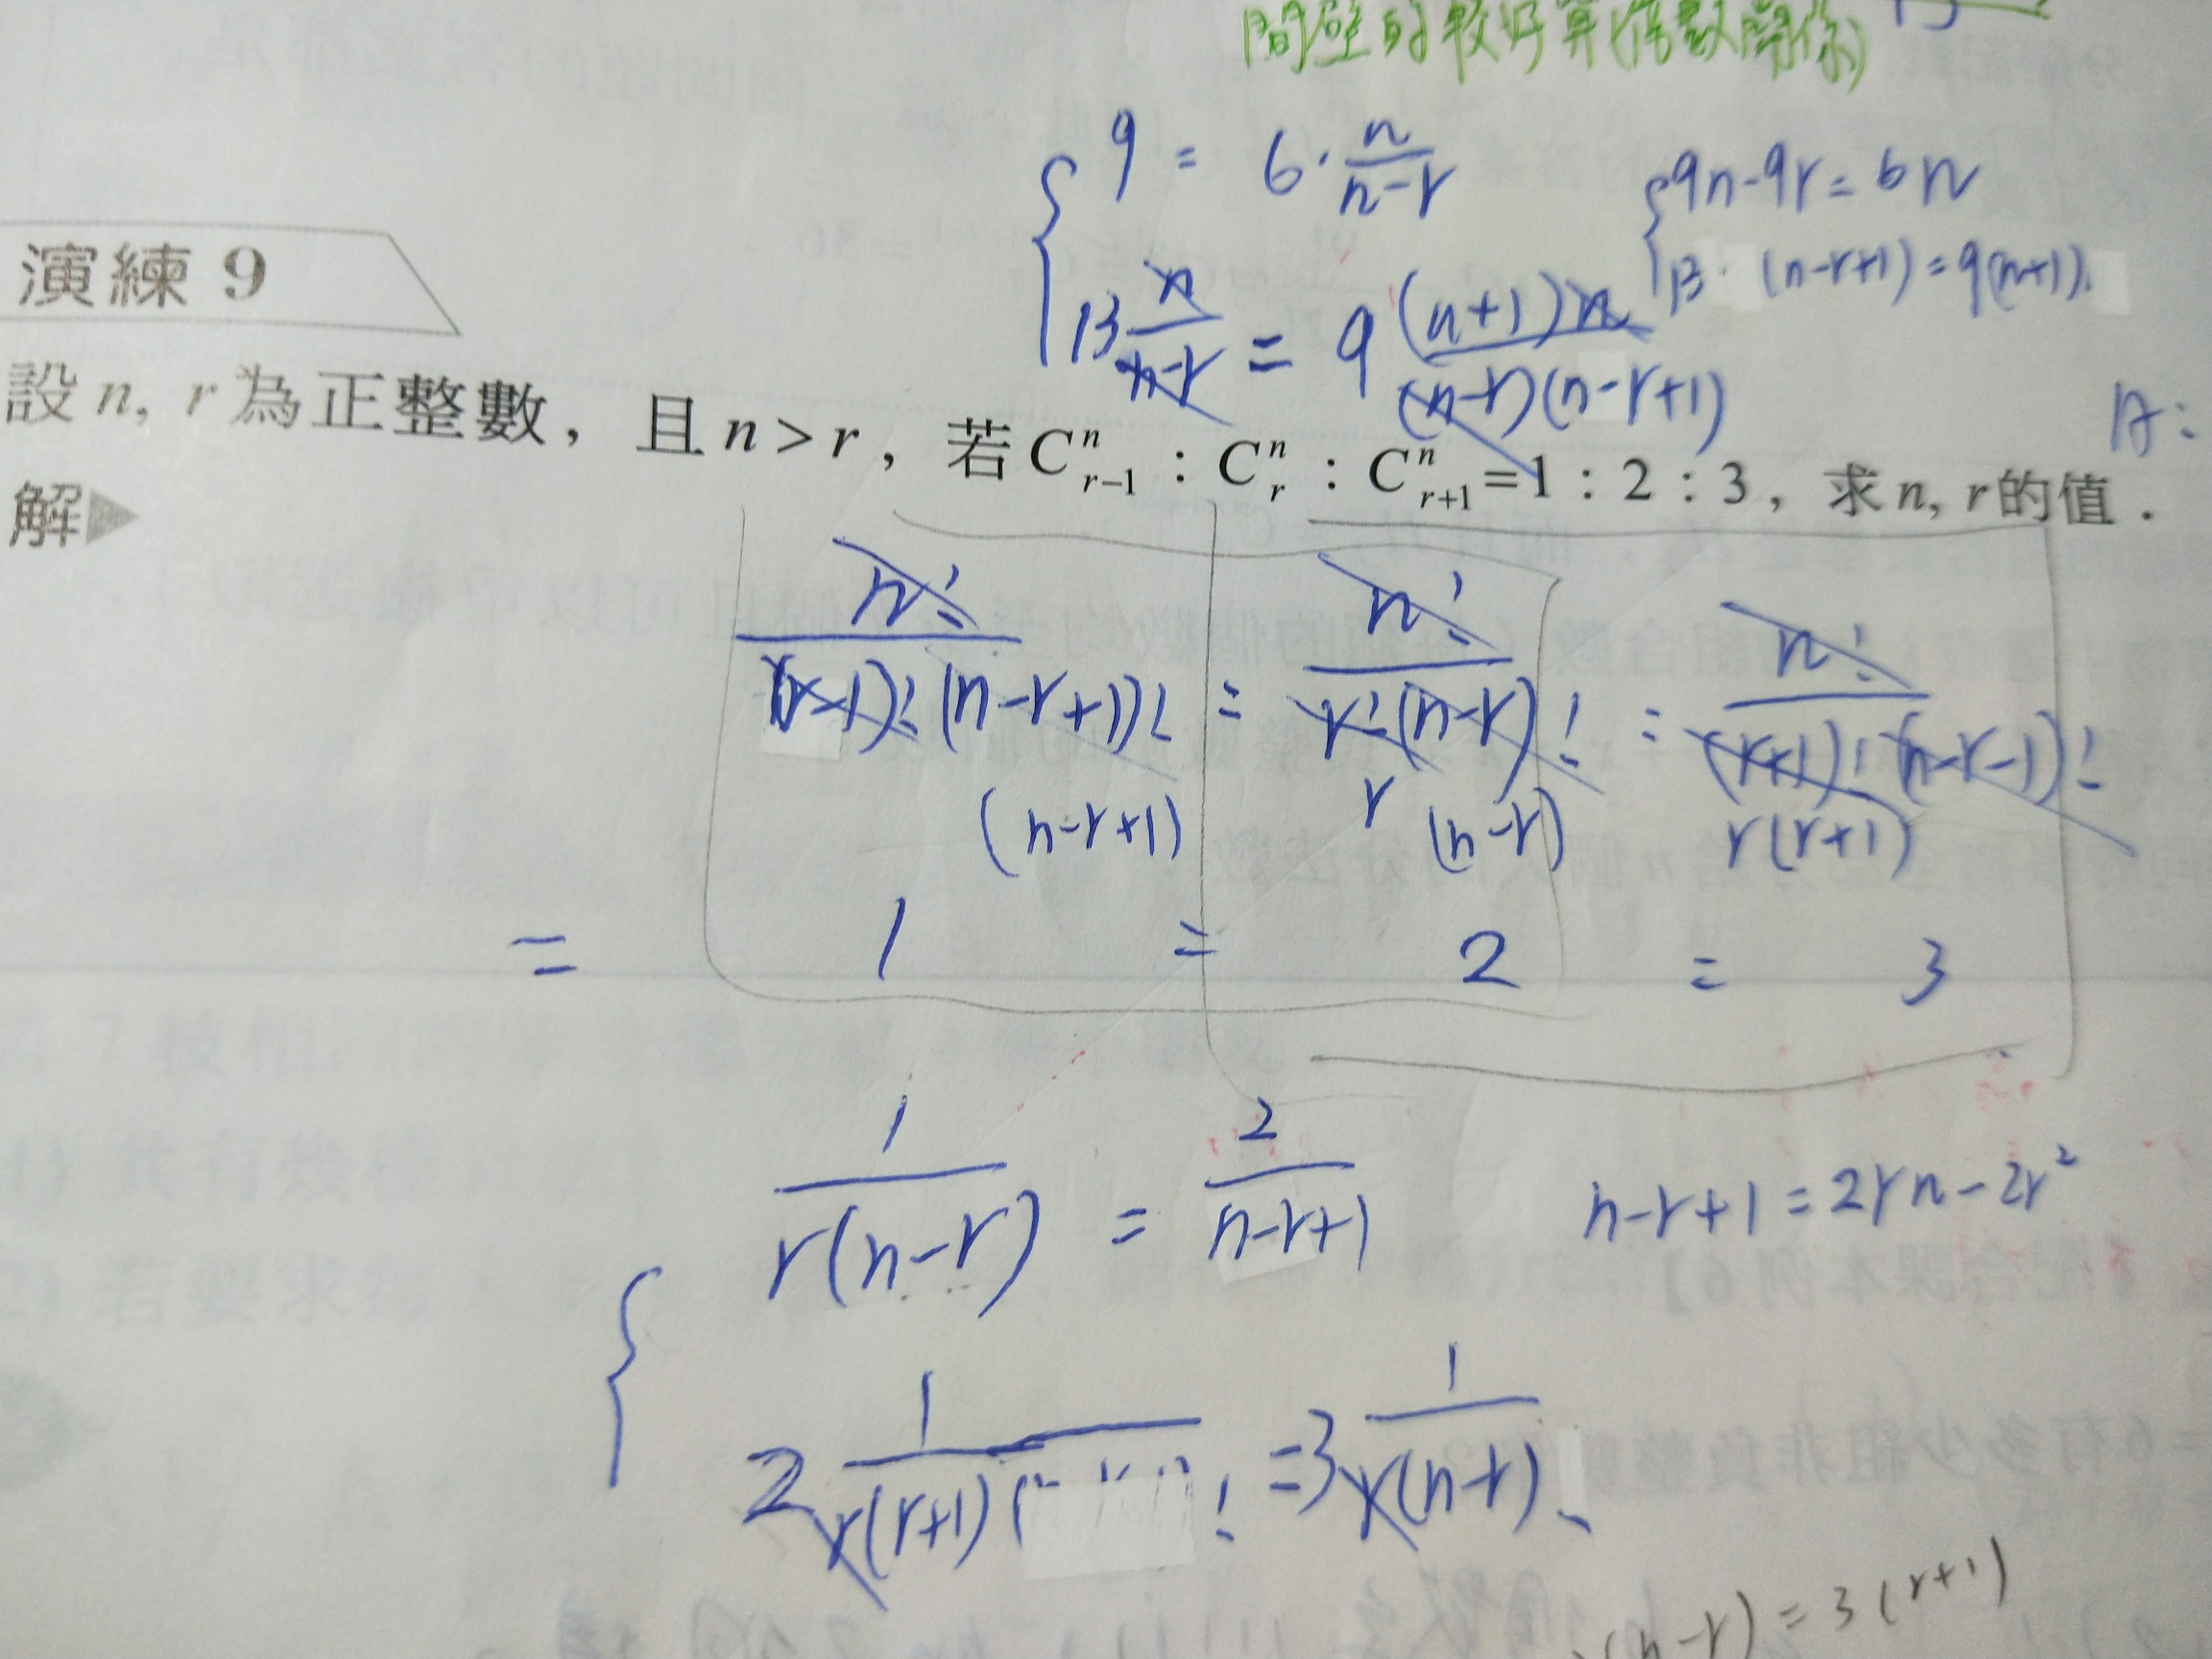 間壁的較好算(倍數關係)
9 = 6 · n/(n-r)
13 n/(n-r) = 9 (n+1)n/((n-r)(n-r+1))
9n-9r = 6n
13 · (n-r+1) = 9(n+1)
演練 9
設 n, r 為正整數，且 n > r，若 C^n_{r-1} : C^n_r : C^n_{r+1} = 1 : 2 : 3，求 n, r 的值．
解▶
n!/((r-1)!(n-r+1)!) : n!/(r!(n-r)!) : n!/((r+1)!(n-r-1)!)
(n-r+1) r (n-r) r(r+1)
= 1 : 2 : 3
1/(r(n-r)) = 2/(n-r+1)
n-r+1 = 2rn-2r²
2 1/(r(r+1) = 3 1/(r(n-r)
(n-r) = 3(r+1)